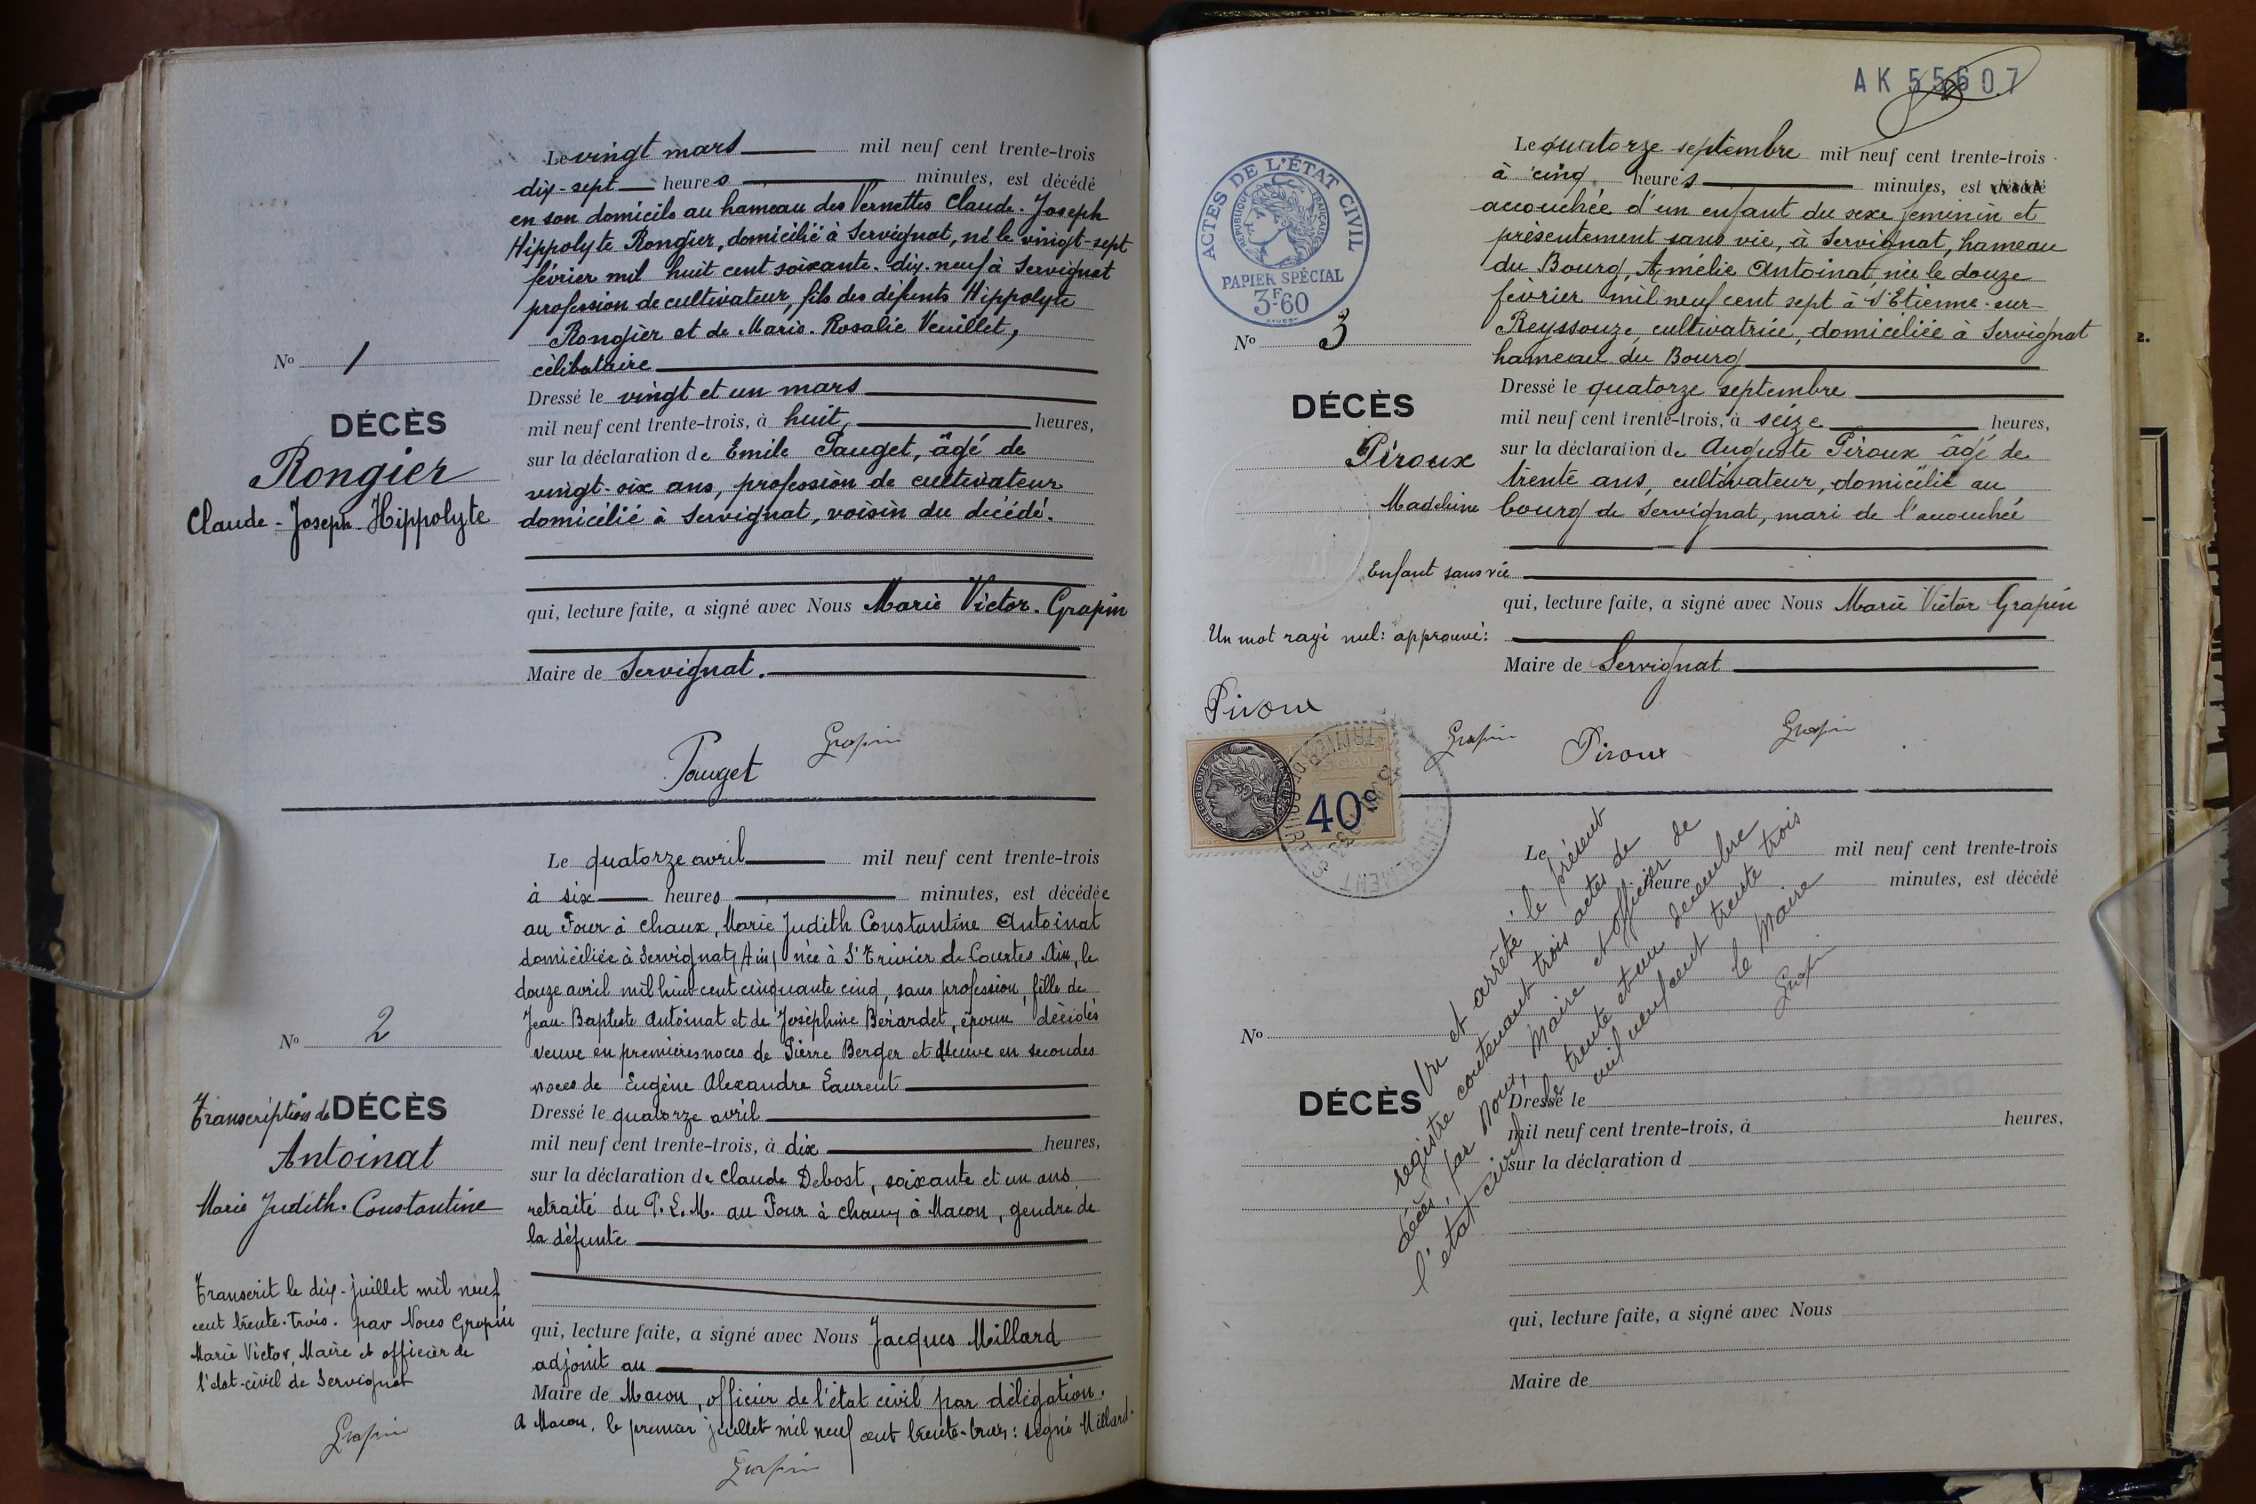 Le vingt mars mil neuf cent trente-trois
dix-sept heures minutes, est décédé
en son domicile au hameau des Vernettes Claude-Joseph
Hippolyte Rongier, domicilié à Servignat, né le vingt-sept
février mil huit cent soixante-dix-neuf à Servignat
profession de cultivateur, fils des défunts Hippolyte
Rongier et de Marie-Rosalie Veuillet,
célibataire
Dressé le vingt et un mars
mil neuf cent trente-trois, à huit, heures,
sur la déclaration de Emile Pauget, âgé de
vingt-six ans, profession de cultivateur
domicilié à Servignat, voisin du décédé.
qui, lecture faite, a signé avec Nous Marie Victor Grapin
Maire de Servignat.
No 1
DÉCÈS
Rongier
Claude-Joseph-Hippolyte
Pauget Grapin
Le quatorze avril mil neuf cent trente-trois
à six heures minutes, est décédée
au Four à chaux, Marie Judith Constantine Antoinat
domiciliée à Servignat (Ain) née à St Trivier de Courtes Ain, le
douze avril mil huit cent cinquante cinq, sans profession, fille de
Jean-Baptiste Antoinat et de Joséphine Berardet, époux décédés
veuve en premières noces de Pierre Berger et veuve en secondes
noces de Eugène Alexandre Laurent
Dressé le quatorze avril
mil neuf cent trente-trois, à dix heures,
sur la déclaration de Claude Debost, soixante et un ans
retraité du P.L.M. au Four à chaux à Macon, gendre de
la défunte
qui, lecture faite, a signé avec Nous Jacques Millard
adjoint au
Maire de Macon, officier de l'état civil par délégation.
A Macon, le premier juillet mil neuf cent trente-trois: signé Millard.
Grapin
No 2
Transcription de DÉCÈS
Antoinat
Marie Judith-Constantine
Transcrit le dix-juillet mil neuf
cent trente-trois. par Nous Grapin
Marie Victor, Maire et officier de
l'état-civil de Servignat
Grapin
AK 55607
ACTES DE L'ÉTAT CIVIL
RÉPUBLIQUE FRANÇAISE
PAPIER SPÉCIAL
3F60
Le quatorze septembre mil neuf cent trente-trois
à cinq heures minutes, est décédé
accouchée d'un enfant du sexe féminin et
présentement sans vie, à Servignat, hameau
du Bourg, Amélie Antoinat née le douze
février mil neuf cent sept à St Etienne-sur-
Reyssouze, cultivatrice, domiciliée à Servignat
hameau du Bourg
Dressé le quatorze septembre
mil neuf cent trente-trois, à seize heures,
sur la déclaration de Auguste Piroux âgé de
trente ans, cultivateur, domicilié au
bourg de Servignat, mari de l'accouchée
qui, lecture faite, a signé avec Nous Marie Victor Grapin
Maire de Servignat
No 3
DÉCÈS
Piroux
Madeleine
Enfant sans vie
Un mot rayé nul: approuvé:
Piroux
Grapin Piroux Grapin
40c
Le mil neuf cent trente-trois
heure minutes, est décédé
No
DÉCÈS
Dressé le
mil neuf cent trente-trois, à heures,
sur la déclaration d
qui, lecture faite, a signé avec Nous
Maire de
Vu et arrêté le présent
registre contenant trois actes de
décès, par Nous, Maire et officier de
l'état civil le trente et un decembre
mil neuf cent trente trois
le Maire
Grapin